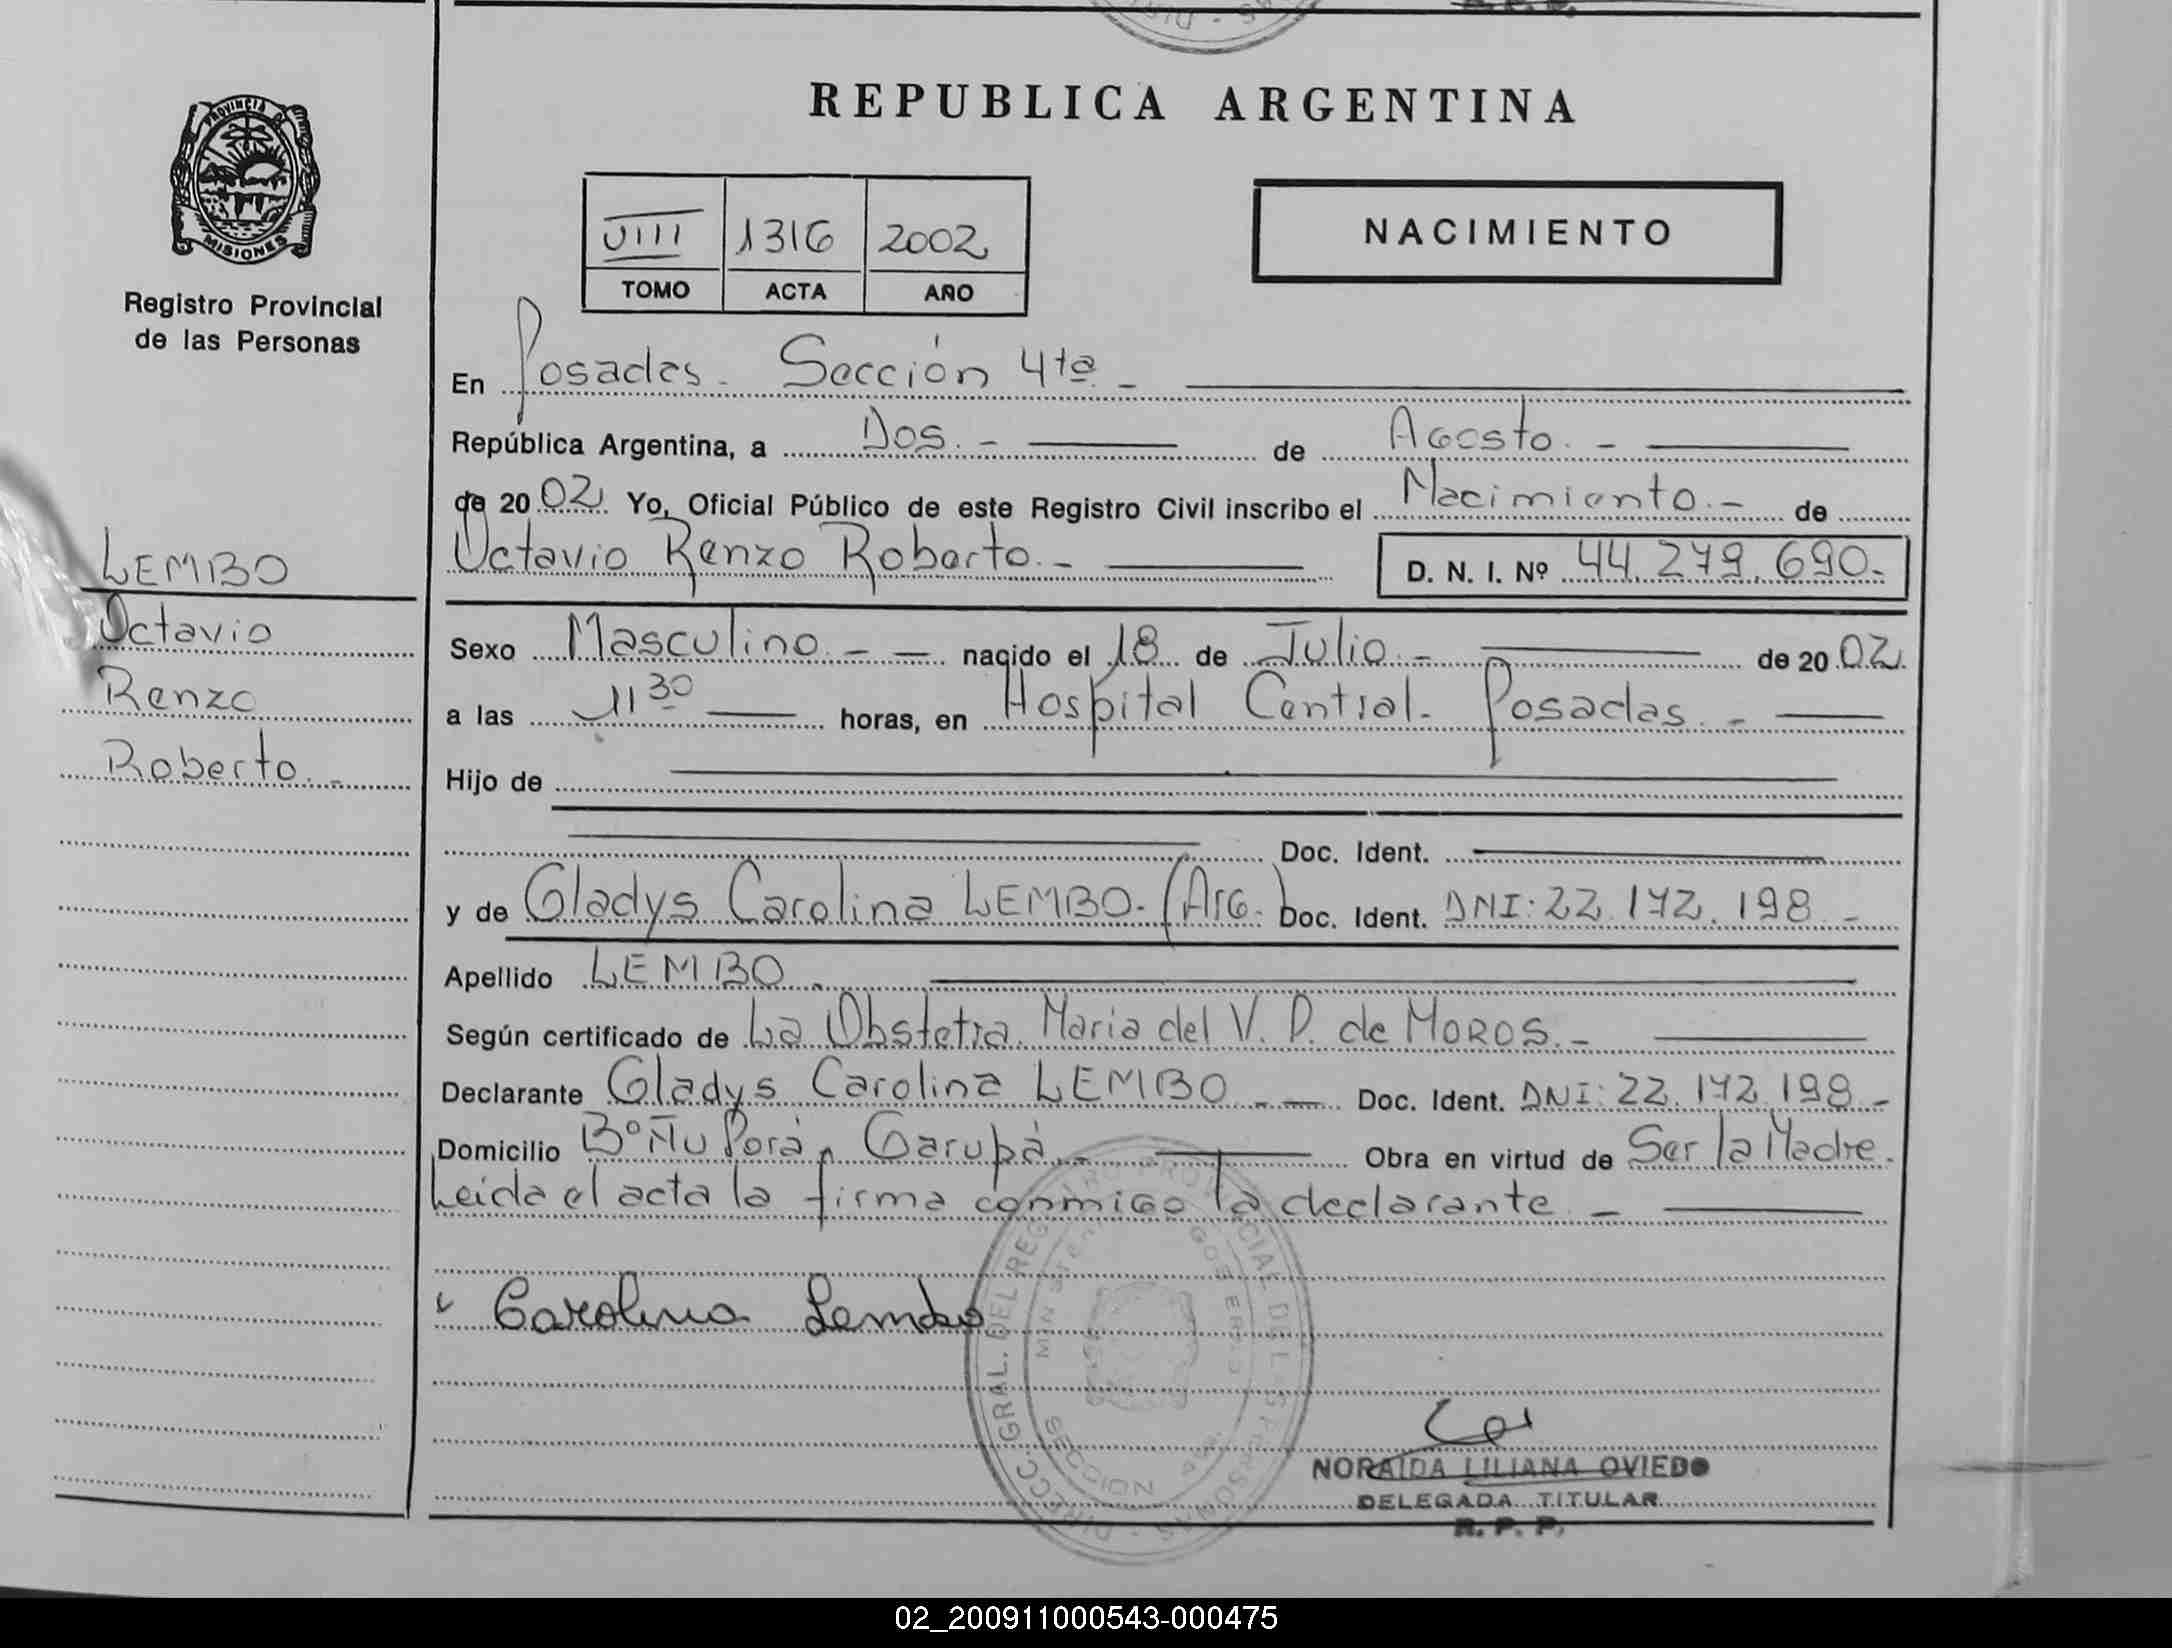 REPUBLICA ARGENTINA
PROVINCIA DE MISIONES
Registro Provincial
de las Personas
VIII 1316 2002
TOMO ACTA AÑO
NACIMIENTO
En Posadas. Sección 4ta. -
República Argentina, a Dos. - de Agosto. -
de 2002 Yo, Oficial Público de este Registro Civil inscribo el Nacimiento. - de
Octavio Renzo Roberto. - D. N. I. Nº 44.279.690.-
LEMBO
Octavio
Renzo
Roberto. -
Sexo Masculino. - - nacido el 18 de Julio. - de 2002.
a las 11 30 horas, en Hospital Central. Posadas. -
Hijo de
Doc. Ident.
y de Gladys Carolina LEMBO. (Arg.) Doc. Ident. DNI: 22.172.198. -
Apellido LEMBO.
Según certificado de La Obstetra. Maria del V. P. de MOROS. -
Declarante Gladys Carolina LEMBO. - Doc. Ident. DNI: 22.172.198. -
Domicilio Bº Ñu Porá, Garupá. - Obra en virtud de Ser la Madre.
Leida el acta la firma conmigo la declarante. -
Carolina Lembo
DIRECC. GRAL. DEL REGISTRO PROVINCIAL DE LAS PERSONAS
SECCION 4ta.
NORAIDA LILIANA OVIEDO
DELEGADA TITULAR
R. P. P.
02_200911000543-000475